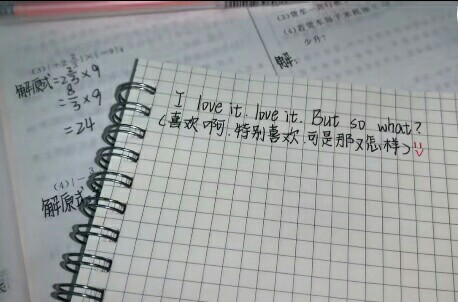 (3)
解:原式=2⅔×9
=8/3×9
=24
(4)
解:原式
解:
I love it. love it. But so what?
(喜欢啊.特别喜欢.可是那又怎样)